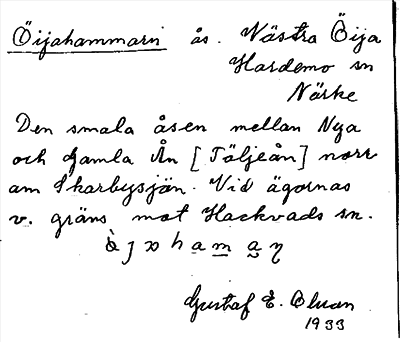 Öijahammarn ås. Västra Öija
Hardemo sn
Närke
Den smala åsen mellan Nya
och Gamla Ån [Täljeån] norr
om Skarbysjön. Vid ägornas
v. gräns mot Hackvads sn.
Gustaf E. Olsson
1933